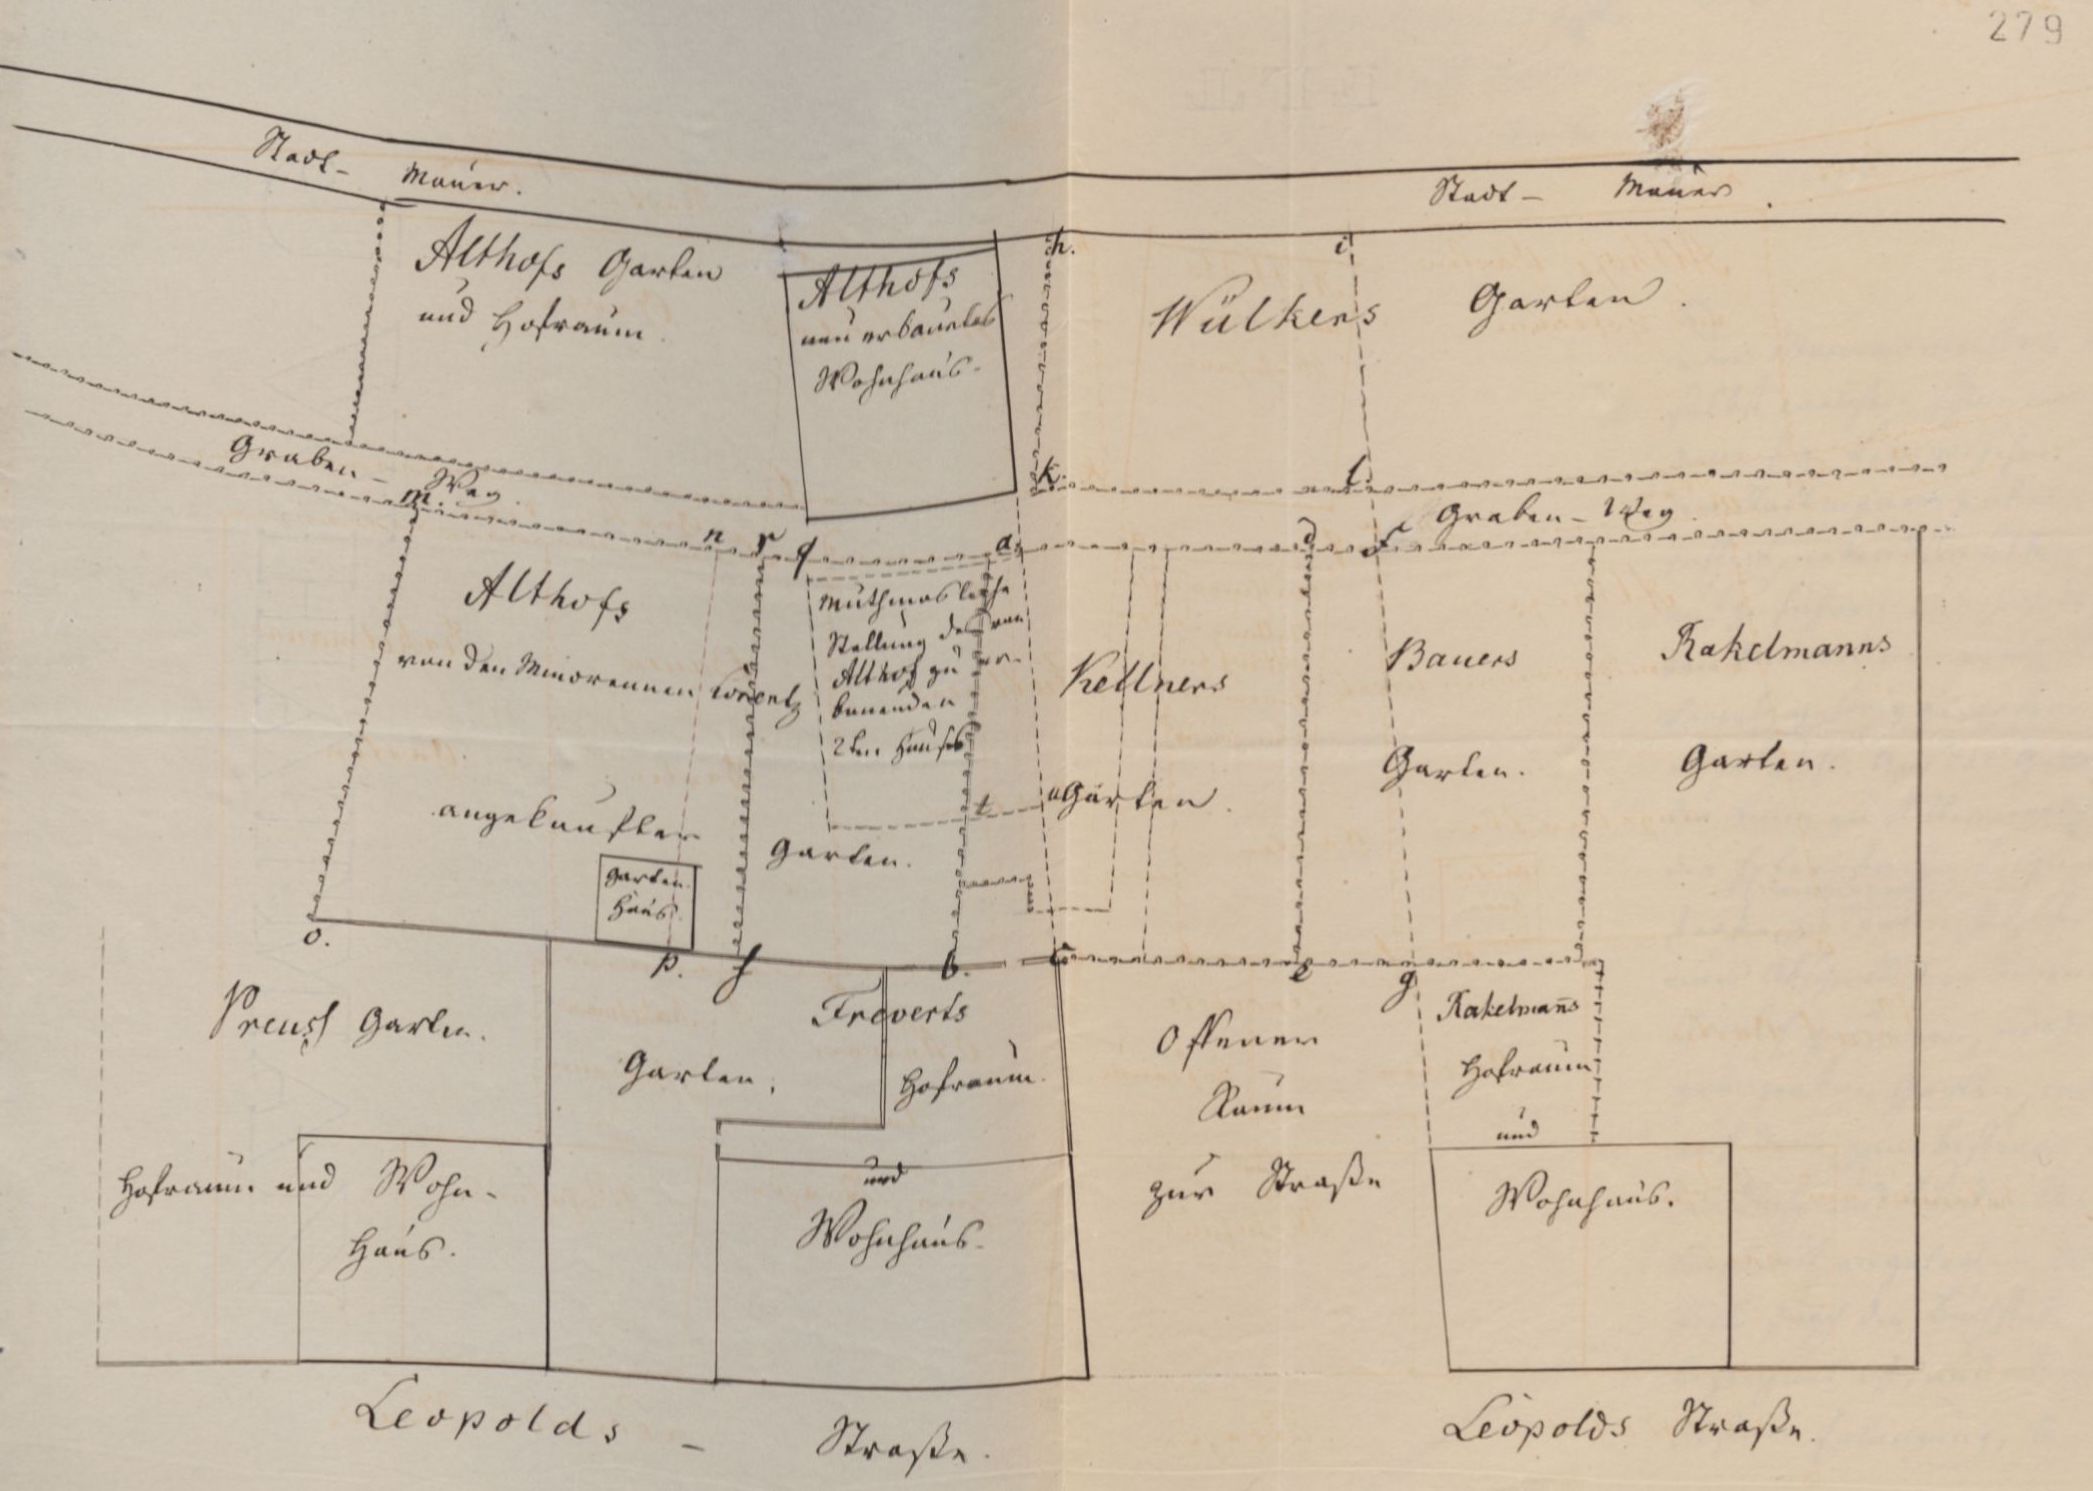 279
Stadt- Mauer.
Stadt- Mauer.
Althofs Garten
und Hofraum.
Althofs
neu erbautes
Wohnhaus.
h.
i
Wülkers Garten.
k.
l.
Graben- Weg.
Graben- Weg.
m.
n
r
q
a.
d
f
Althofs
von den Minorennen Lorentz
angekaufter
Garten.
Garten
Haus.
Muthmasliche
Stellung des von
Althof zu er-
bauenden
2ten Hauses
t
u
Kellners
Garten.
Bauers
Garten.
Rakelmanns
Garten.
o.
p.
s
b.
c
e
g
Preuss Garten.
Hofraum und Wohn-
Haus.
Treverts
Garten,
Hofraum.
und
Wohnhaus.
Offener
Raum
zur Straße
Rakelman̄s
Hofraum
und
Wohnhaus.
Leopolds - Straße.
Leopolds Straße.